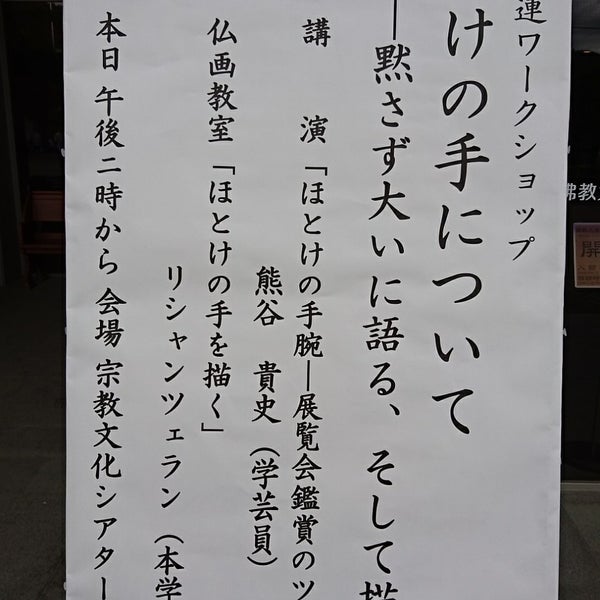 連ワークショップ
けの手について
―黙さず大いに語る、そして
講　演「ほとけの手腕―展覧会鑑賞のツ
熊谷　貴史（学芸員）
仏画教室「ほとけの手を描く」
リシャンツェラン（本学
本日 午後二時から 会場 宗教文化シアター
佛教
開